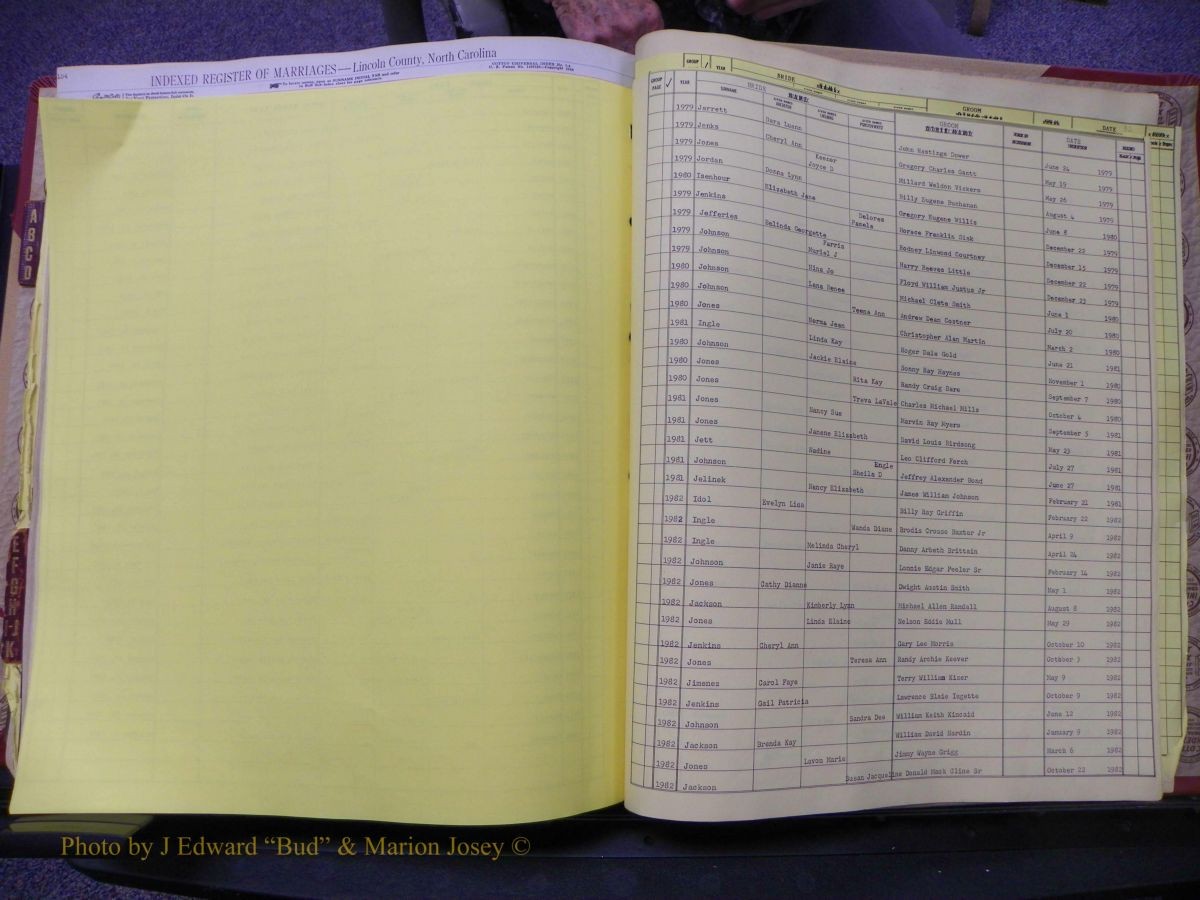 INDEXED REGISTER OF MARRIAGES — Lincoln County, North Carolina
A
B
C
D
E
F
G
H
I-J
K
GROUP YEAR BRIDE GROOM DATE
GROUP PAGE YEAR BRIDE GROOM DATE
SURNAME
1979 Jarrett Sara Luann John Hastings Dower June 24 1979
1979 Jenks Cheryl Ann Gregory Charles Gantt May 19 1979
1979 Jones Keener Joyce D Millard Weldon Vickers May 26 1979
1979 Jordan Donna Lynn Billy Eugene Buchanan August 4 1979
1980 Isenhour Elizabeth Jane Gregory Eugene Willis June 8 1980
1979 Jenkins Delores Pamela Horace Franklin Sisk December 22 1979
1979 Jefferies Belinda Georgette Rodney Linwood Courtney December 15 1979
1979 Johnson Parvis Muriel J Harry Reeves Little December 22 1979
1979 Johnson Nina Jo Floyd William Justus Jr December 23 1979
1980 Johnson Lana Renee Michael Clete Smith June 1 1980
1980 Johnson Teena Ann Andrew Dean Costner July 20 1980
1980 Jones Norma Jean Christopher Alan Martin March 2 1980
1981 Ingle Linda Kay Roger Dale Gold June 21 1981
1980 Johnson Jackie Elaine Sonny Ray Haynes November 1 1980
1980 Jones Rita Kay Randy Craig Dare September 7 1980
1980 Jones Treva LaVale Charles Michael Mills October 4 1980
1981 Jones Nancy Sue Marvin Ray Myers September 5 1981
1981 Jones Janene Elizabeth David Louis Birdsong May 23 1981
1981 Jett Nadine Leo Clifford Ferch July 27 1981
1981 Johnson Engle Sheila D Jeffrey Alexander Bond June 27 1981
1981 Jelinek Nancy Elizabeth James William Johnson February 21 1981
1982 Idol Evelyn Lisa Billy Ray Griffin February 22 1982
1982 Ingle Wanda Diane Brodis Crouse Baxter Jr April 9 1982
1982 Ingle Melinda Cheryl Danny Arbeth Brittain April 24 1982
1982 Johnson Janie Raye Lonnie Edgar Peeler Sr February 14 1982
1982 Jones Cathy Dianne Dwight Austin Smith May 1 1982
1982 Jackson Kimberly Lynn Michael Allen Randall August 8 1982
1982 Jones Linda Elaine Nelson Eddie Mull May 29 1982
1982 Jenkins Cheryl Ann Gary Lee Morris October 10 1982
1982 Jones Teresa Ann Randy Archie Keever October 3 1982
1982 Jimenez Carol Faye Terry William Kizer May 9 1982
1982 Jenkins Gail Patricia Lawrence Elsie October 9 1982
1982 Johnson Sandra Dee William Keith Kincaid June 12 1982
1982 Jackson Brenda Kay William David Hardin January 9 1982
1982 Jones Lavon Marie Jimmy Wayne Grigg March 6 1982
1982 Jackson Susan Jacqueline Donald Mack Cline Sr October 22 1982
Photo by J Edward “Bud” & Marion Josey ©